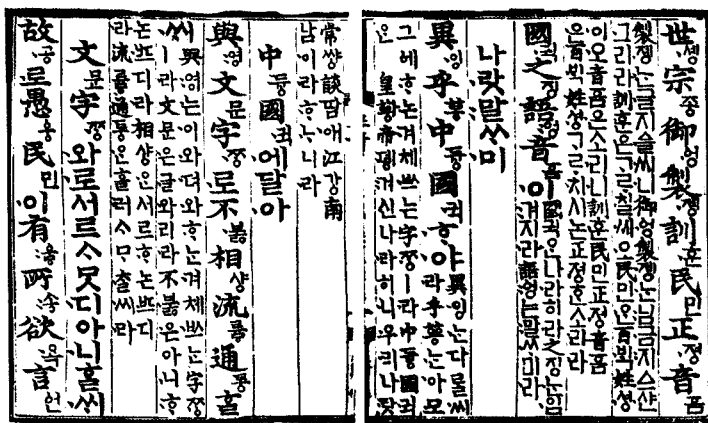 世솅宗종御ᅌᅥᆼ製졩訓훈民민正졍音ᅙᅳᆷ
製졩는글지ᅀᅳᆯ씨니御ᅌᅥᆼ製졩는님금지ᅀᅳ샨
그리라訓훈은ᄀᆞᄅᆞ칠씨오民민ᄋᆞᆫ百ᄇᆡᆨ姓셩
이오音ᅙᅳᆷ은소리니訓훈民민正졍音ᅙᅳᆷ
은百ᄇᆡᆨ姓셩ᄀᆞᄅᆞ치시논正졍ᄒᆞᆫ소리라
國귁之징語ᅌᅥᆼ音ᅙᅳᆷ이
國귁ᄋᆞᆫ나라히라之징ᄂᆞᆫ입
겨지라語ᅌᅥᆼ는말ᄊᆞ미라
나랏말ᄊᆞ미
異잉乎ᅘᅩᆼ中듕國귁ᄒᆞ야
異잉ᄂᆞᆫ다ᄅᆞᆯ씨
라乎ᅘᅩᆼᄂᆞᆫ아모
그ᅌᅦᄒᆞ논겨체ᄡᅳ는字ᄍᆞᆼㅣ라中듕國귁
ᄋᆞᆫ皇ᅘᅪᆼ帝뎽겨신나라히니우리나랏
常썅談땀애江강南
남이라ᄒᆞᄂᆞ니라
中듕國귁에달아
與영文문字ᄍᆞᆼ로不부ᇙ相샹流륭通통ᄒᆞᆯ
씨
與영는이와뎌와ᄒᆞ는겨체ᄡᅳ는字ᄍᆞᆼ
ㅣ라文문은글와리라不부ᇙ은아니ᄒᆞ
논ᄠᅳ디라相샹ᄋᆞᆫ서르ᄒᆞ논ᄠᅳ디
라流륭通통은흘러ᄉᆞᄆᆞᄎᆞᆯ씨라
文문字ᄍᆞᆼ와로서르ᄉᆞᄆᆞᆺ디아니ᄒᆞᆯᄊᆡ
故공로愚ᅌᅮᆼ民민이有우ᇢ所송欲욕言언